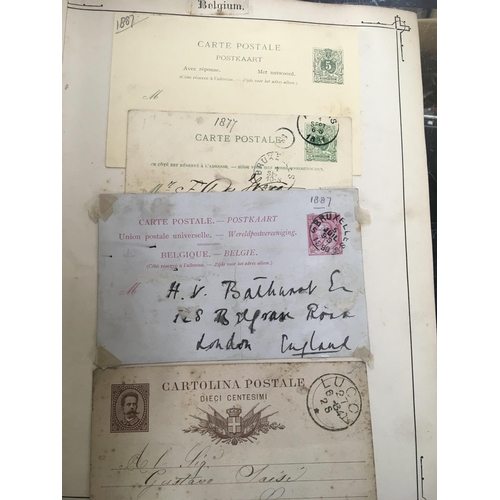 Belgium.
1887
CARTE POSTALE
POSTKAART
Avec réponse. Met antwoord.
(Côté réservé à l'adresse. — Zijde voor het adres alleen.)
5
M
1877
CARTE POSTALE
1887
CARTE POSTALE. — POSTKAART
Union postale universelle. — Wereldpostvereeniging.
BELGIQUE. — BELGIE.
(Côté réservé à l'adresse. — Zijde voor het adres alleen.)
BRUXELLES
M
H. V. Bathurst Es
128 Belgrave Road
London England
CARTOLINA POSTALE
DIECI CENTESIMI
LUGO
27
6 25
Al Sig.
Gustavo